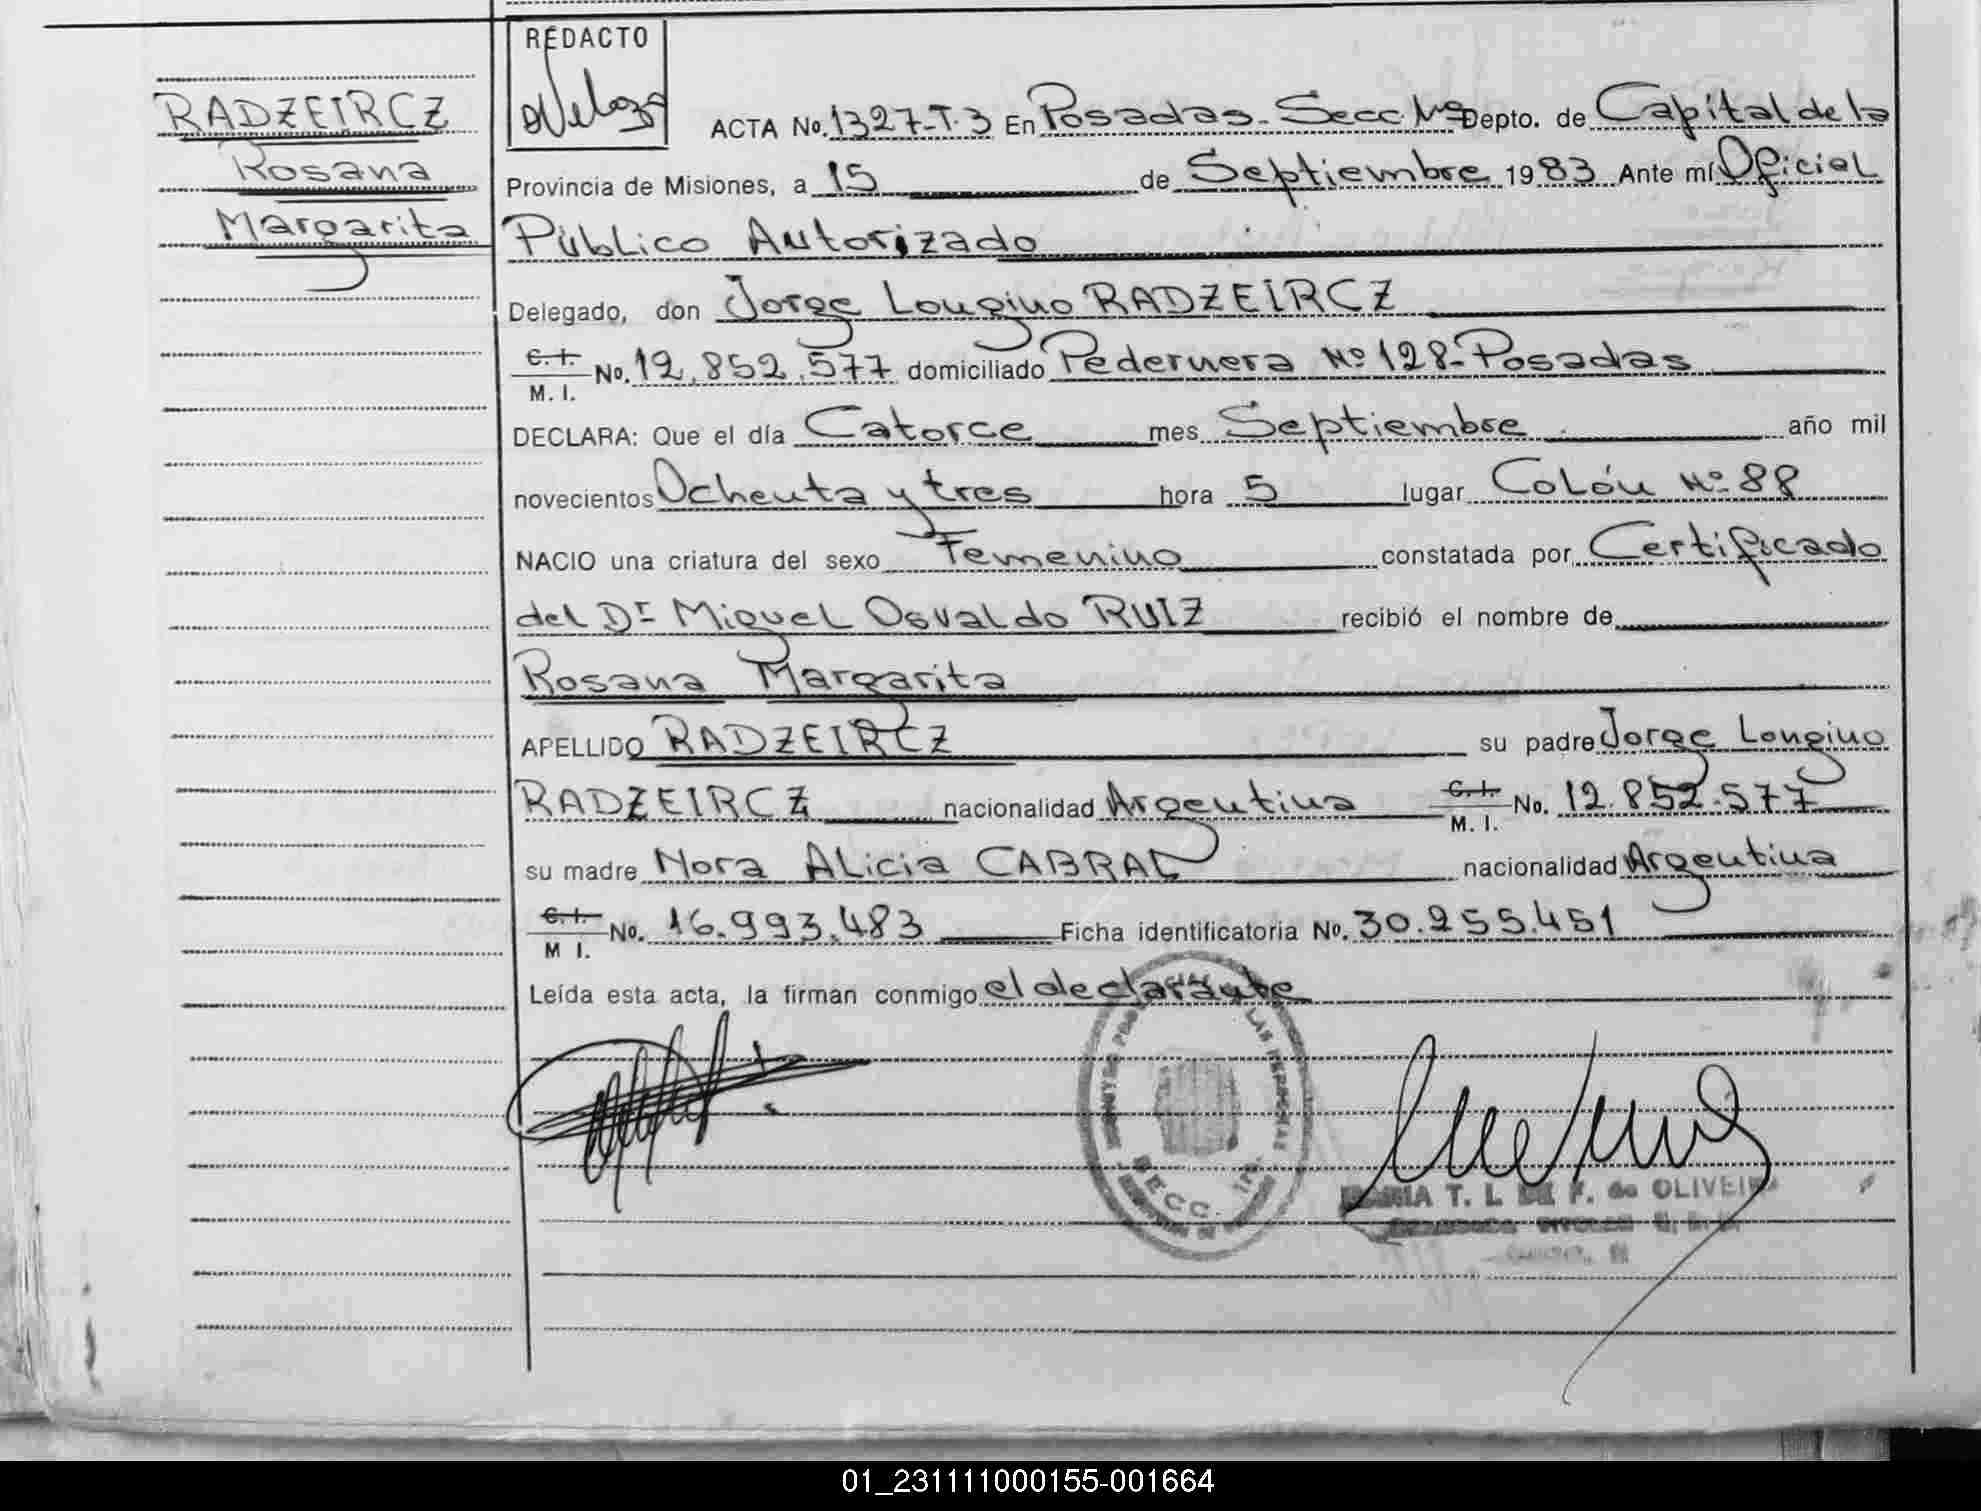 REDACTO
RADZEIRCZ
Rosana
Margarita
ACTA No. 1327-T.3 En Posadas-Secc Depto. de Capital de la
Provincia de Misiones, a 15 de Septiembre 1983 Ante mí Oficial
Público Autorizado
Delegado, don Jorge Longino RADZEIRCZ
C. I. M. I. No. 12.852.577 domiciliado Pedernera Nº 128-Posadas
DECLARA: Que el día Catorce mes Septiembre año mil
novecientos Ochenta y tres hora 5 lugar Colón Nº 88
NACIO una criatura del sexo Femenino constatada por Certificado
del Dr Miguel Osvaldo RUIZ recibió el nombre de
Rosana Margarita
APELLIDO RADZEIRCZ su padre Jorge Longino
RADZEIRCZ nacionalidad Argentina C. I. M. I. No. 12.852.577
su madre Nora Alicia CABRAL nacionalidad Argentina
C. I. M I. No. 16.993.483 Ficha identificatoria No. 30.255.451
Leída esta acta, la firman conmigo el declarante
SECC. 1ra.
MARIA T. L. DE F. de OLIVEIRA
01_231111000155-001664